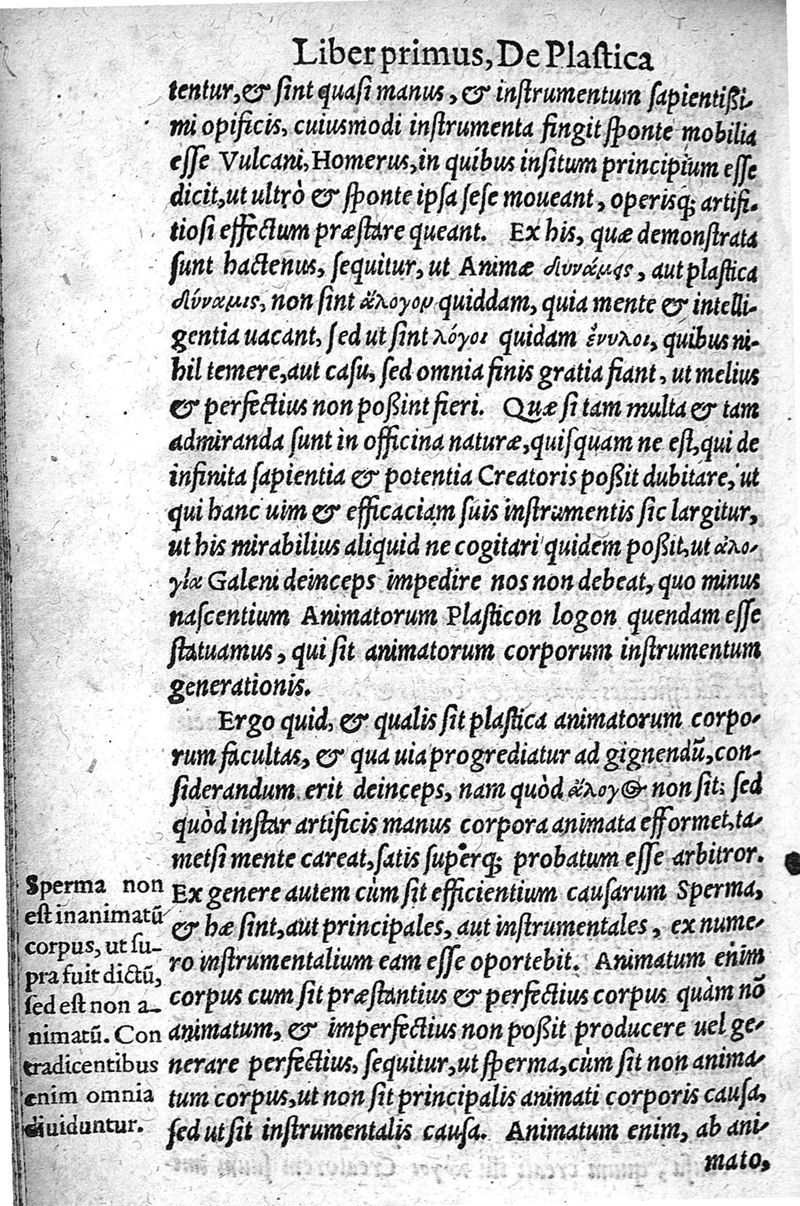 Liber primus, De Plastica
tentur, & sint quasi manus, & instrumentum sapientißi-
mi opificis, cuiusmodi instrumenta fingit sponte mobilia
esse Vulcani, Homerus, in quibus insitum principium esse
dicit, ut ultrò & sponte ipsa sese moueant, operisq; artifi-
tiosi effectum præstare queant. Ex his, quæ demonstrata
sunt hactenus, sequitur, ut Animæ δυνάμεις, aut plastica
δύναμις, non sint ἄλογον quiddam, quia mente & intelli-
gentia uacant, sed ut sint λόγοι quidam ἔνυλοι, quibus ni-
hil temere, aut casu, sed omnia finis gratia fiant, ut melius
& perfectius non poßint fieri. Quæ si tam multa & tam
admiranda sunt in officina naturæ, quisquam ne est, qui de
infinita sapientia & potentia Creatoris poßit dubitare, ut
qui hanc uim & efficaciam suis instrumentis sic largitur,
ut his mirabilius aliquid ne cogitari quidem poßit, ut ἀλο-
γία Galeni deinceps impedire nos non debeat, quo minus
nascentium Animatorum Plasticon logon quendam esse
statuamus, qui sit animatorum corporum instrumentum
generationis.
Ergo quid, & qualis sit plastica animatorum corpo-
rum facultas, & qua uia progrediatur ad gignendũ, con-
siderandum erit deinceps, nam quòd ἄλογος non sit: sed
quòd instar artificis manus corpora animata efformet, ta-
metsi mente careat, satis superq; probatum esse arbitror.
Ex genere autem cùm sit efficientium causarum Sperma,
& hæ sint, aut principales, aut instrumentales, ex nume-
ro instrumentalium eam esse oportebit. Animatum enim
corpus cum sit præstantius & perfectius corpus quàm nõ
animatum, & imperfectius non poßit producere uel ge-
nerare perfectius, sequitur, ut sperma, cùm sit non anima-
tum corpus, ut non sit principalis animati corporis causa,
sed ut sit instrumentalis causa. Animatum enim, ab ani-
mato,
Sperma non
est inanimatũ
corpus, ut su-
pra fuit dictũ,
sed est non a-
nimatũ. Con
tradicentibus
enim omnia
diuiduntur.